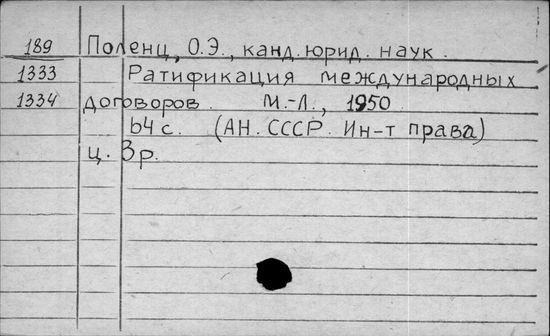 189 Поленц, О.Э., канд. юрид. наук.
1333 Ратификация международных
1334 договоров. М.-Л., 1950
64 с. (АН. СССР. Ин-т права)
ц. 3 р.